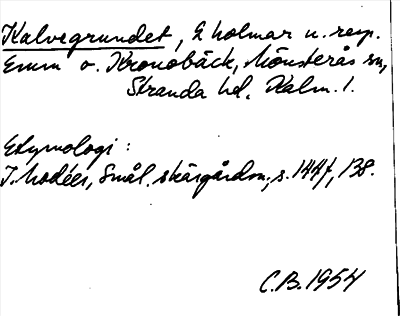 Kalvegrundet, 2 holmar n. resp.
Emm o. Kronobäck, Mönsterås sn,
Stranda hd. Kalm. l.
Etymologi:
I. Modéer, Smål. skärgårdsn., s. 144f, 138.
C.B. 1954